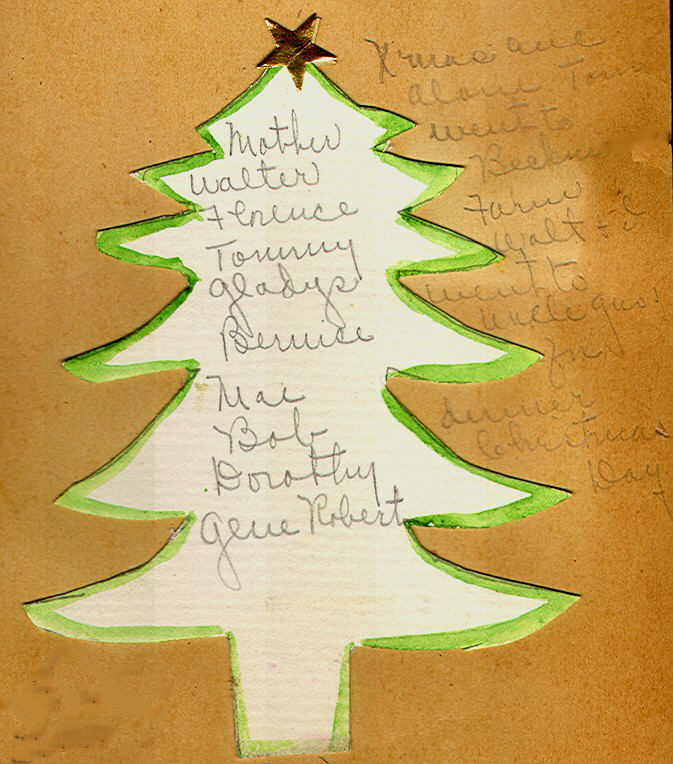 Mother
Walter
Florence
Tommy
Gladys
Bernice
Mae
Bob
Dorothy
Gene Robert
Xmas eve
alone Tom
went to
Farm
Walt + I
went to
Uncle Gus'
for
dinner
Christmas
Day